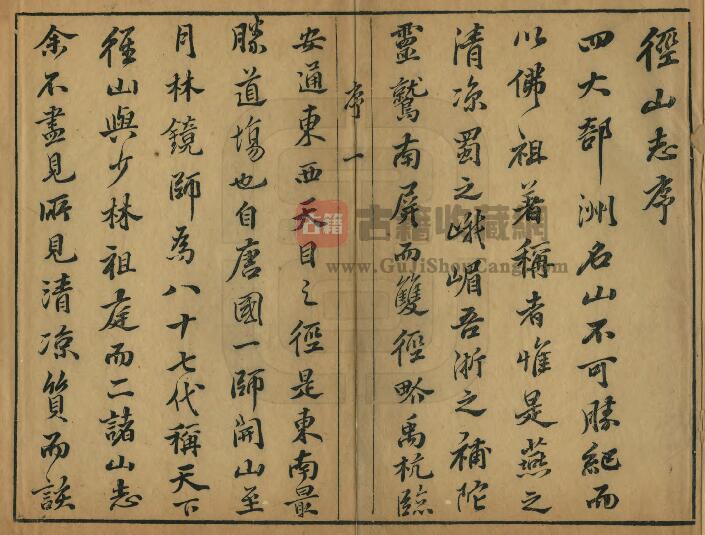 徑山志序
四大部洲名山不可勝紀而
以佛祖著稱者惟是燕之
清凉蜀之峨嵋吾浙之補陀
靈鷲南屏而雙徑畍禹杭臨
序 一
安通東西天目之徑是東南最
勝道塲也自唐國一師開山至
月林鏡師為八十七代稱天下
徑山與少林祖庭而二諸山志
余不盡見所見清凉質而該
古籍 古籍收藏網
www.GuJiShouCang.com